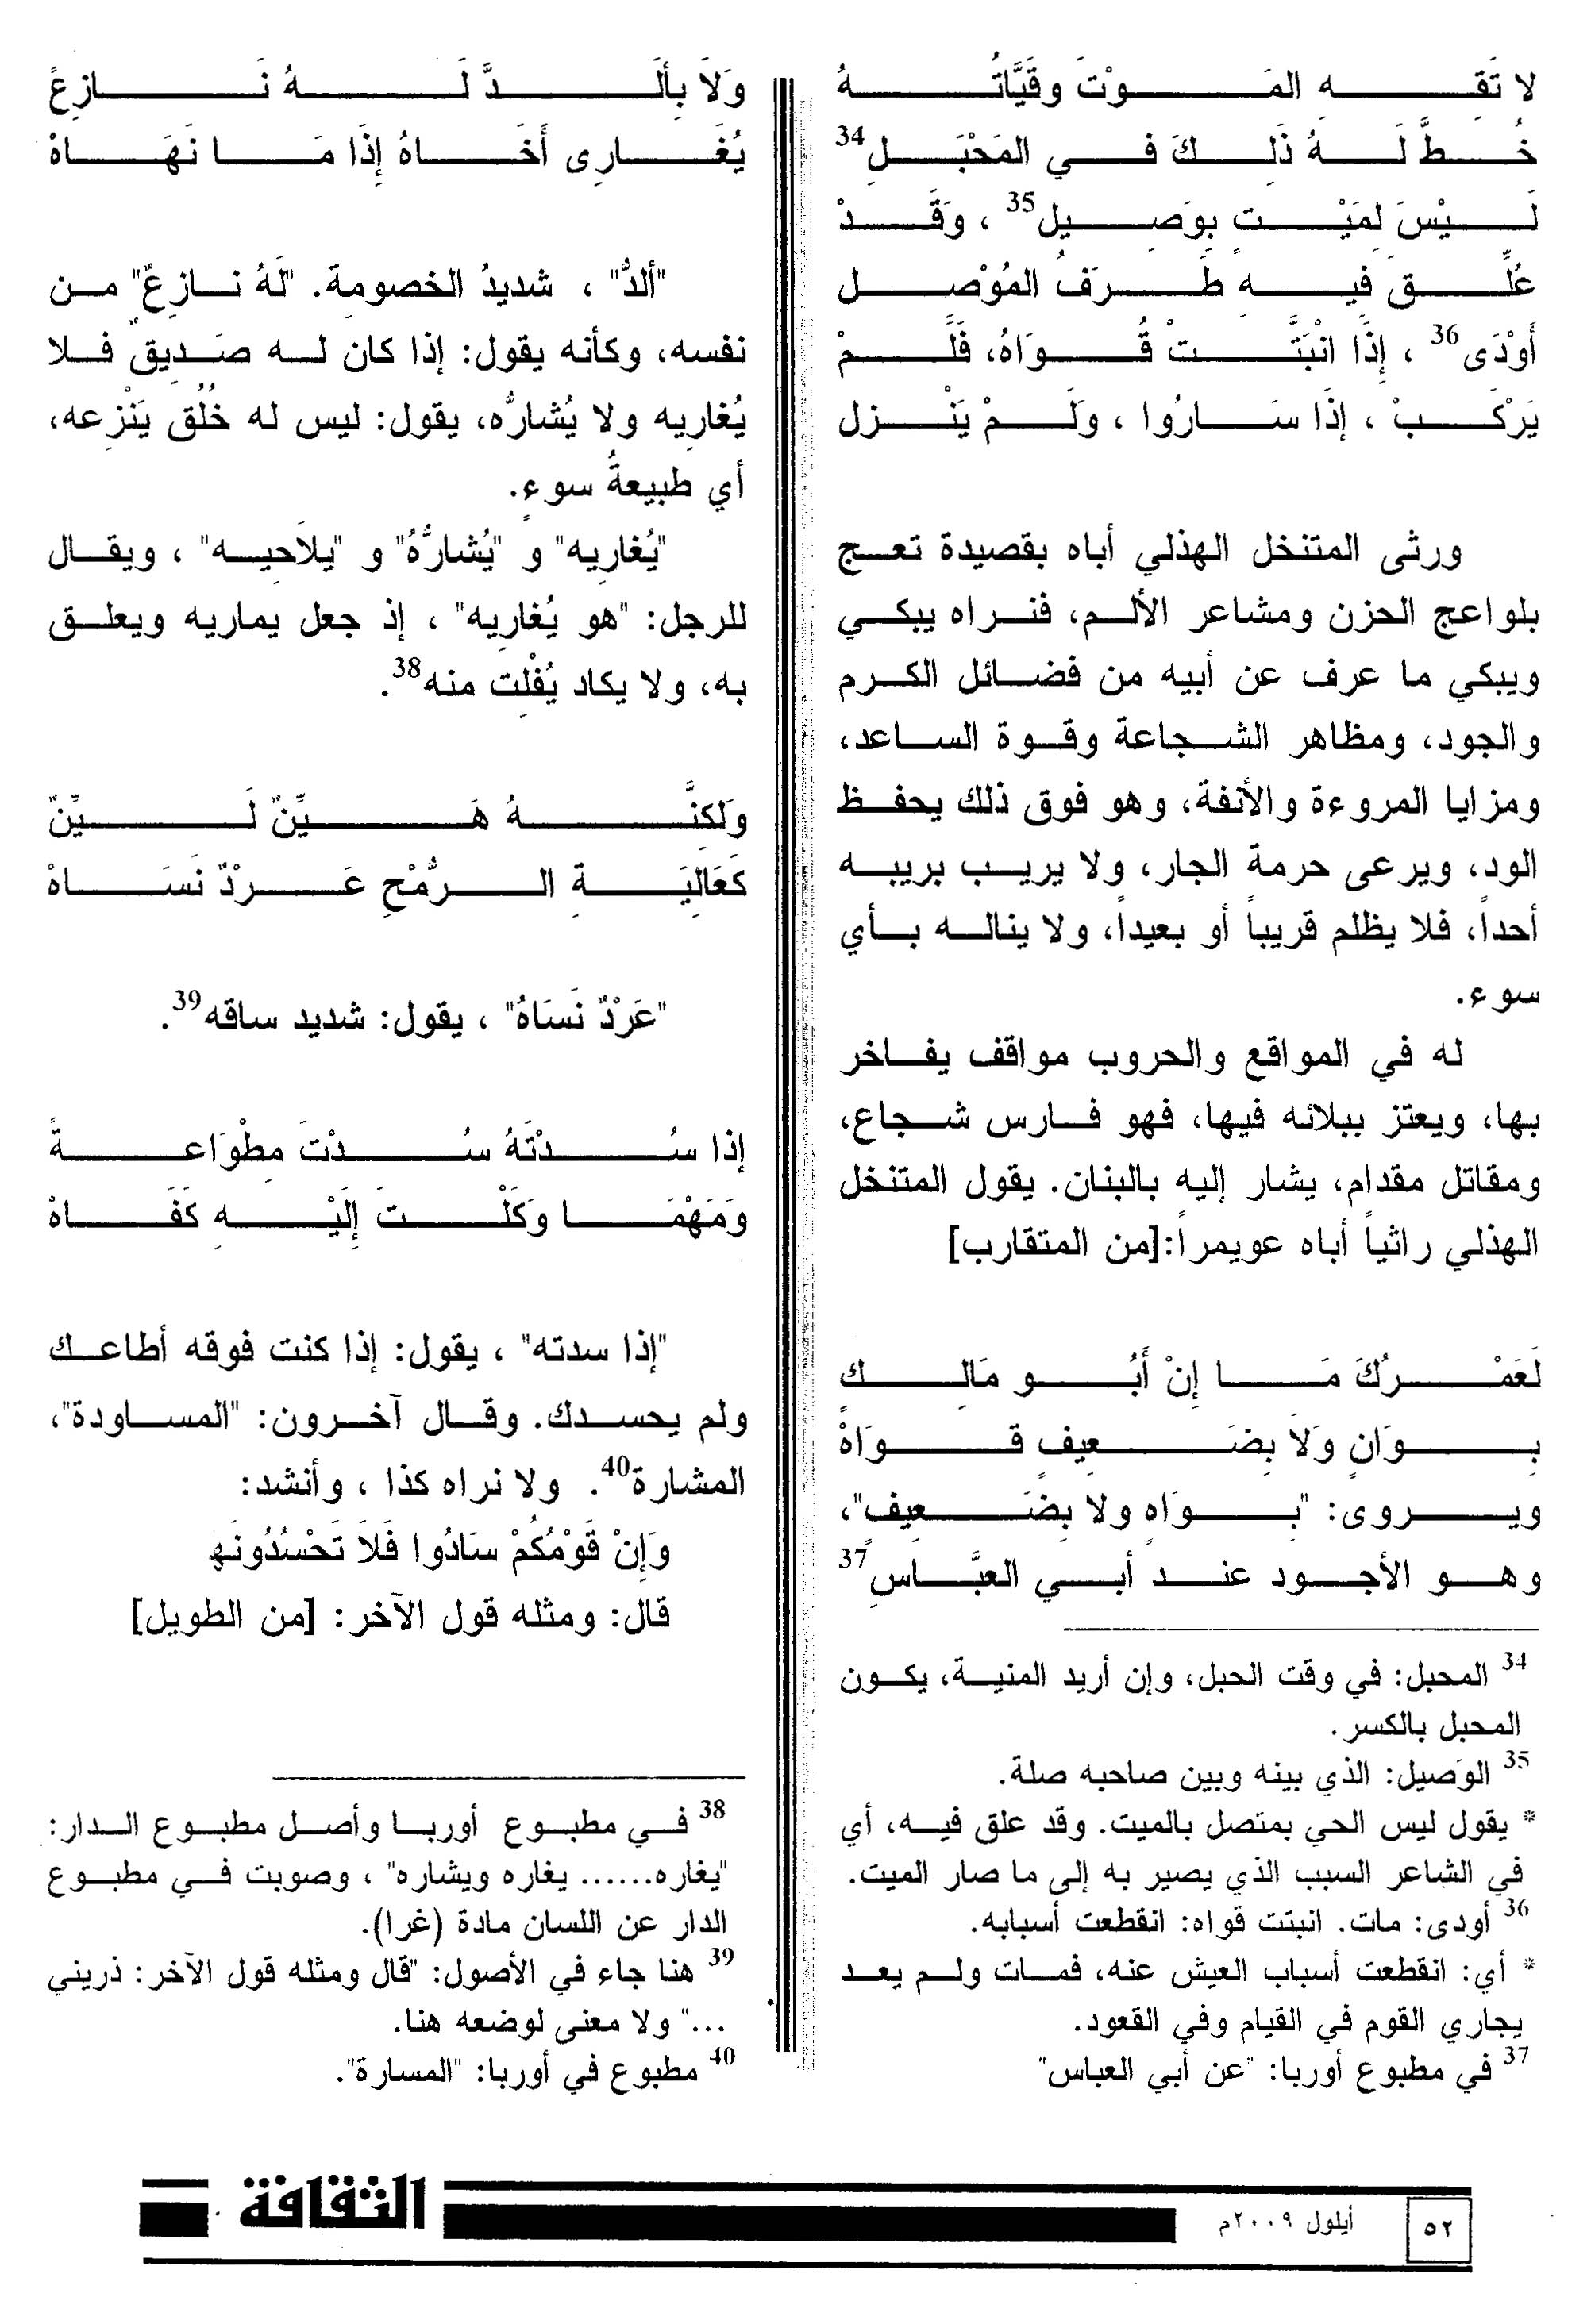 لا تَقِهِ المَوْتَ وقَيَّاتُهُ
خُطَّ لَهُ ذَلِكَ في المَحْبَلِ34
لَيْسَ لِمَيْتٍ بِوَصِيل35 ، وَقَدْ
عُلِّقَ فِيهِ طَرَفُ المُوْصِل
أَوْدَى36 ، إِذَا انْبَتَّتْ قُوَاهُ، فَلَمْ
يَرْكَبْ ، إِذَا سَارُوا ، وَلَمْ يَنْزِل
ورثى المتنخل الهذلي أباه بقصيدة تعج
بلواعج الحزن ومشاعر الألم، فنراه يبكي
ويبكي ما عرف عن أبيه من فضائل الكرم
والجود، ومظاهر الشجاعة وقوة الساعد،
ومزايا المروءة والأنفة، وهو فوق ذلك يحفظ
الود، ويرعى حرمة الجار، ولا يريب بريبه
أحداً، فلا يظلم قريباً أو بعيداً، ولا يناله بأي
سوء.
له في المواقع والحروب مواقف يفاخر
بها، ويعتز ببلائه فيها، فهو فارس شجاع،
ومقاتل مقدام، يشار إليه بالبنان. يقول المتنخل
الهذلي راثياً أباه عويمراً:[من المتقارب]
لَعَمْرُكَ مَا إِنْ أَبُو مَالِكٍ
بِوَانٍ وَلاَ بِضَعِيفٍ قُوَاهْ
ويروى: "بِوَاهٍ ولا بِضَعِيفٍ"،
وهو الأجود عند أبي العبَّاسِ37
34 المحبل: في وقت الحبل، وإن أريد المنية، يكون
المحبل بالكسر.
35 الوَصيل: الذي بينه وبين صاحبه صلة.
* يقول ليس الحي بمتصل بالميت. وقد علق فيه، أي
في الشاعر السبب الذي يصير به إلى ما صار الميت.
36 أودى: مات. انبتت قواه: انقطعت أسبابه.
* أي: انقطعت أسباب العيش عنه، فمات ولم يعد
يجاري القوم في القيام وفي القعود.
37 في مطبوع أوربا: "عن أبي العباس"
وَلاَ بِأَلَدَّ لَهُ نَازِعٌ
يُغَارِى أَخَاهُ إِذَا مَا نَهَاهْ
"ألدُّ" ، شديدُ الخصومة. "لَهُ نازِعٌ" من
نفسه، وكأنه يقول: إذا كان له صَدِيقٌ فلا
يُغاريه ولا يُشارُّه، يقول: ليس له خُلُق يَنْزِعه،
أي طبيعةُ سوءٍ.
"يُغارِيه" و "يُشارُّهُ" و "يلاَحِيه" ، ويقال
للرجل: "هو يُغارِيه" ، إذ جعل يماريه ويعلق
به، ولا يكاد يُفْلِت منه38.
وَلَكِنَّهُ هَيِّنٌ لَيِّنٌ
كَعَالِيَةِ الرُّمْحِ عَرْدٌ نَسَاهْ
"عَرْدٌ نَسَاهُ" ، يقول: شديد ساقه39.
إذا سُدْتَهُ سُدْتَ مِطْوَاعةً
وَمَهْمَا وَكَلْتَ إِلَيْهِ كَفَاهْ
"إذا سدته" ، يقول: إذا كنت فوقه أطاعك
ولم يحسدك. وقال آخرون: "المساودة"،
المشارة40. ولا نراه كذا ، وأنشد:
وَإِنْ قَوْمُكُمْ سَادُوا فَلاَ تَحْسُدُونَها
قال: ومثله قول الآخر: [من الطويل]
38 في مطبوع أوربا وأصل مطبوع الدار:
"يغاره...... يغاره ويشاره" ، وصوبت في مطبوع
الدار عن اللسان مادة (غرا).
39 هنا جاء في الأصول: "قال ومثله قول الآخر: ذريني
..." ولا معنى لوضعه هنا.
40 مطبوع في أوربا: "المسارة".
٥٢
أيلول ٢٠٠٩م
الثقافة